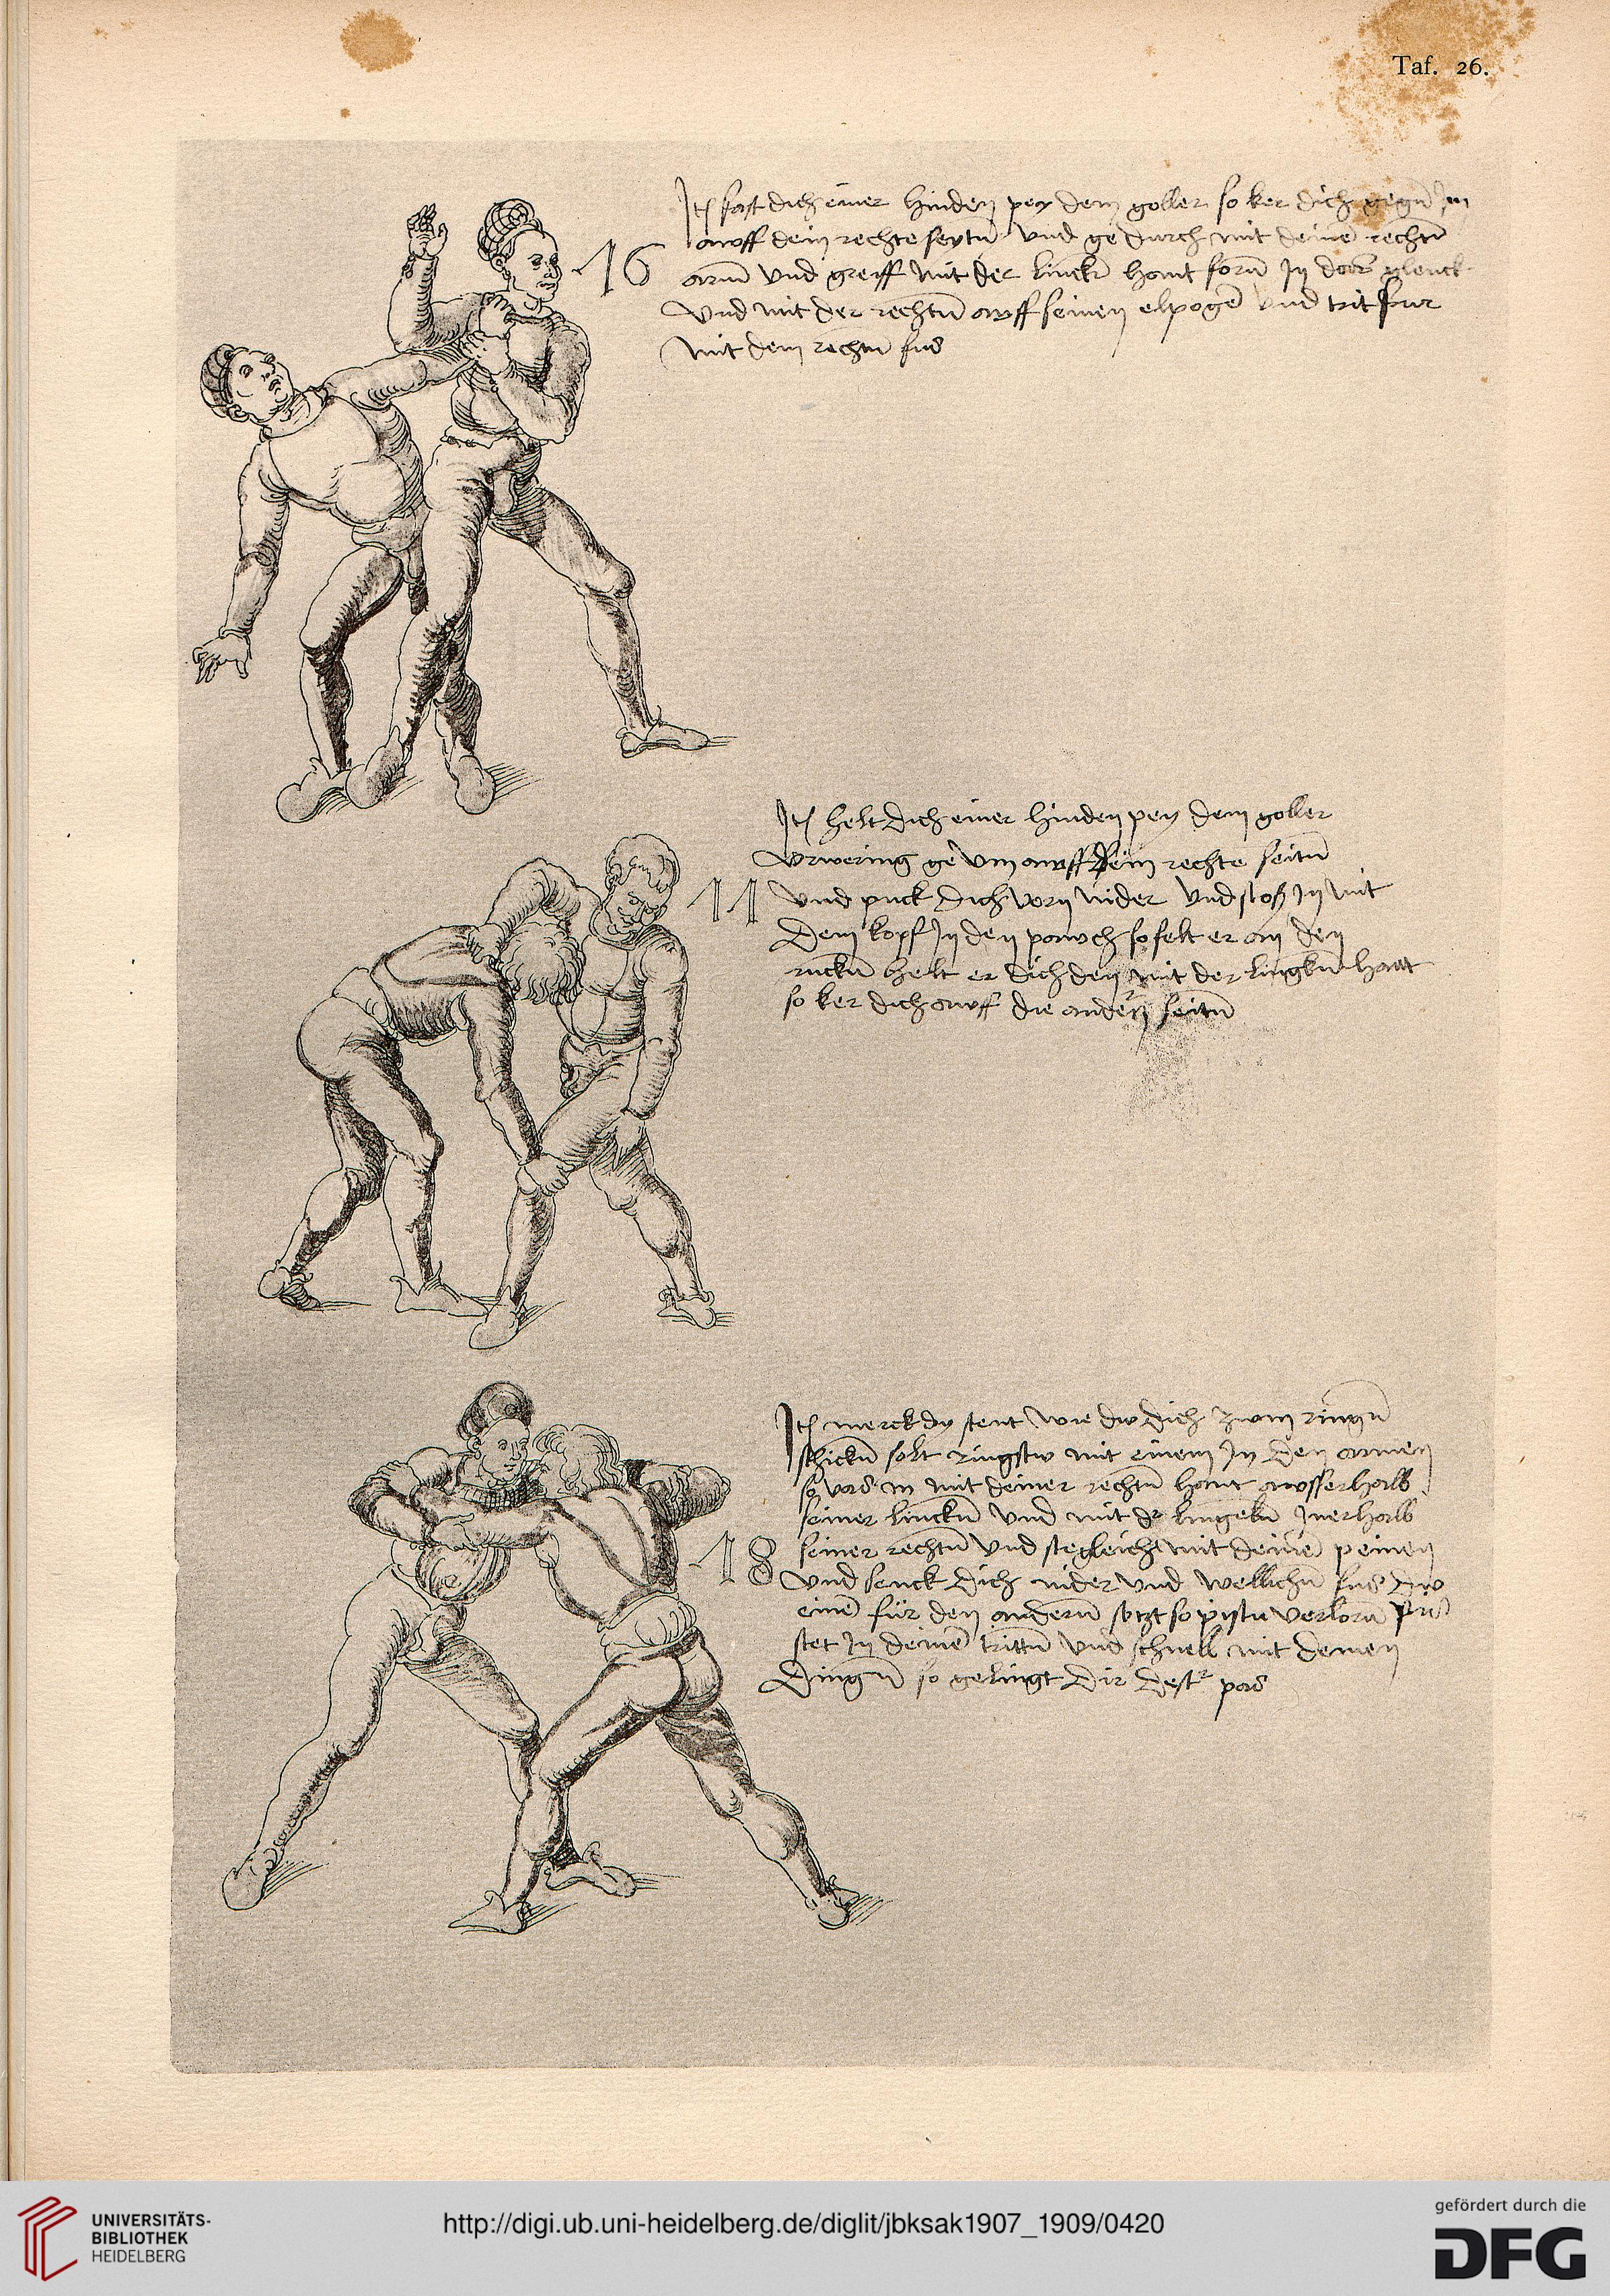 Taf. 26.
Itm̄ fast dich einer hinden pey dem goller so ker dich gegn̄ Im
awff dein rechte seytn̄ vnd ge durch mit deinē rechtn̄
arm̄ vnd greiff mit der linckn̄ hant forn̄ In das glenck
vnd mit der rechtn̄ awff seinen elpogē vnd trit fur
mit dem rechtn̄ fus
16
Itm̄ helt dich einer hinden pey dem goller
vm awff sein rechte seitn̄
und puck dich vorn nider vnd stos In mit
dem kopf In den pawch so felt er an den
ruckn̄ helt er dich den mit der lingkn̄ hant
so ker dich awff die andern seitn̄
11
Itm̄ merck dy stent wie dw dich zwm ringn̄
schickn̄ solt ringstw mit einem In den armen
so vas In mit deiner rechtn̄ hant awsserhalb
seiner linckn̄ vnd mit dr̄ lingckn̄ Inerhalb
seiner rechtn̄ vnd ste gleich mit deinē peinen
vnd senck dich nider vnd wellichn̄ fus dw
einē für den andern̄ setzt so pistu verlorn̄
stet In deinē trittn̄ vnd schnell mit deinen
dingn̄ so gelingt dir dest pas
18
UNIVERSITÄTS-
BIBLIOTHEK
HEIDELBERG
http://digi.ub.uni-heidelberg.de/diglit/jbksak1907_1909/0420
gefördert durch die
DFG